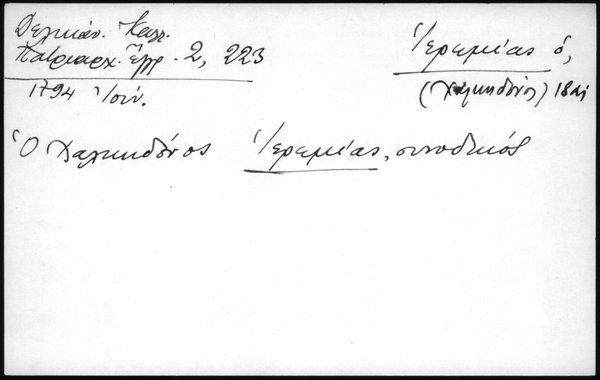 Δελικάν. Καλλ.
Πατριαρχ. Ἔγγρ. 2, 223
1794 Ἰούν.
Ἱερεμίας ὁ,
(Χαλκηδόνος) 18 αἰ
Ὁ Χαλκηδόνος Ἱερεμίας, συνοδικός